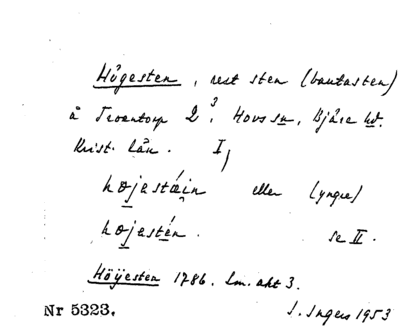 Högesten, rest sten (bautasten)
å Troentorp 2³, Hovs sn, Bjäre hd.
Krist. län. I,
højastæin eller (yngre)
højastén. se II.
Höÿesten 1786. Lm. akt 3.
Nr 5323. I. Ingers 1953